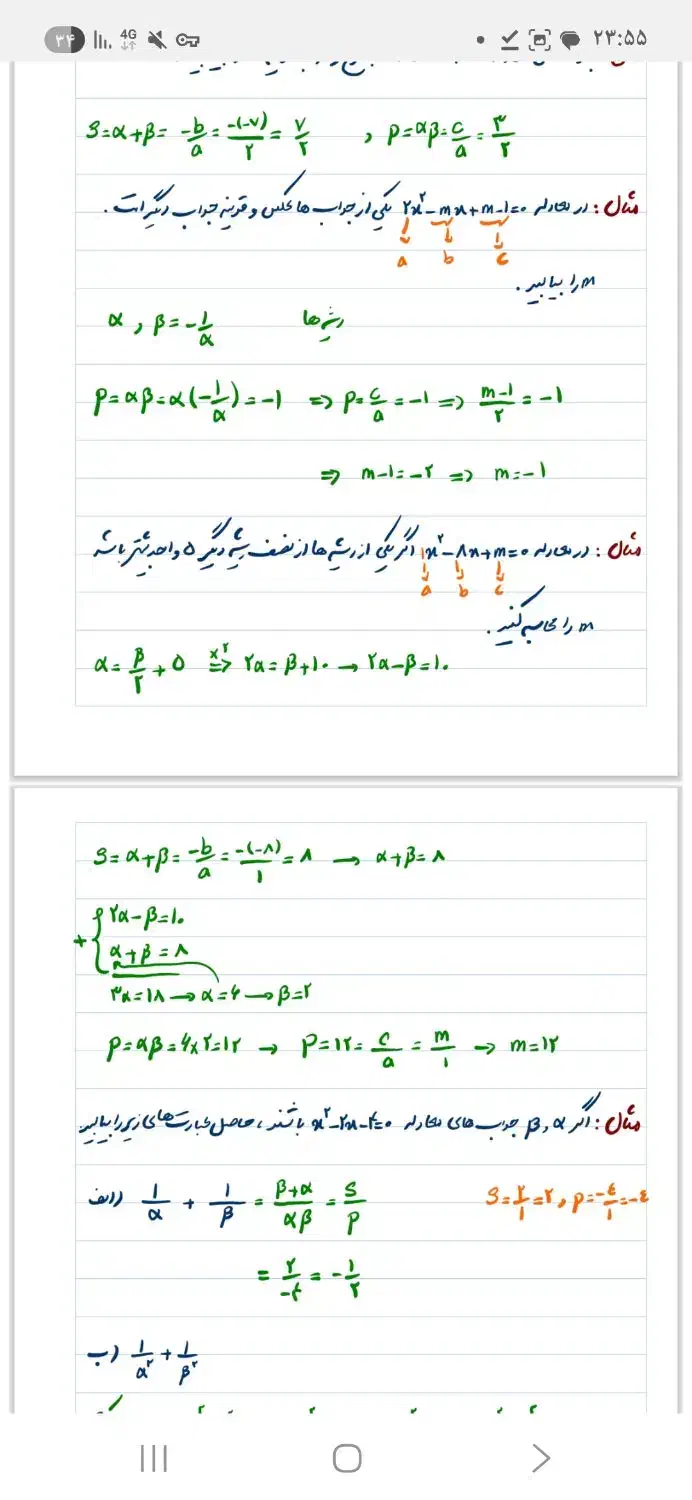 ۲۳:۵۵
4G
۳۴
S = α + β = -b/a = -(-۷)/۲ = ۷/۲ , P = αβ = c/a = ۳/۲
مثال: در معادله ۲x² - mx + m - ۱ = ۰ یکی از جواب ها عکس و قرینه جواب دیگر است.
a b c
m را بیابید.
ریشه ها α , β = -۱/α
P = αβ = α(-۱/α) = -۱ ⇒ P = c/a = -۱ ⇒ (m-۱)/۲ = -۱
⇒ m - ۱ = -۲ ⇒ m = -۱
مثال: در معادله ۱x² - ۸x + m = ۰ اگر یکی از ریشه ها از نصف ریشه دیگر ۵ واحد بیشتر باشد
a b c
m را محاسبه کنید.
α = β/۲ + ۵ ×۲ ⇒ ۲α = β + ۱۰ → ۲α - β = ۱۰
S = α + β = -b/a = -(-۸)/۱ = ۸ → α + β = ۸
۲α - β = ۱۰
+ α + β = ۸
۳α = ۱۸ → α = ۶ → β = ۲
P = αβ = ۶×۲ = ۱۲ → P = ۱۲ = c/a = m/۱ → m = ۱۲
مثال: اگر α , β جواب های معادله x² - ۲x - ۴ = ۰ باشند، حاصل عبارت های زیر را بیابید.
الف) ۱/α + ۱/β = (β+α)/αβ = S/P
S = ۲/۱ = ۲ , P = -۴/۱ = -۴
= ۲/-۴ = -۱/۲
ب) ۱/α² + ۱/β²